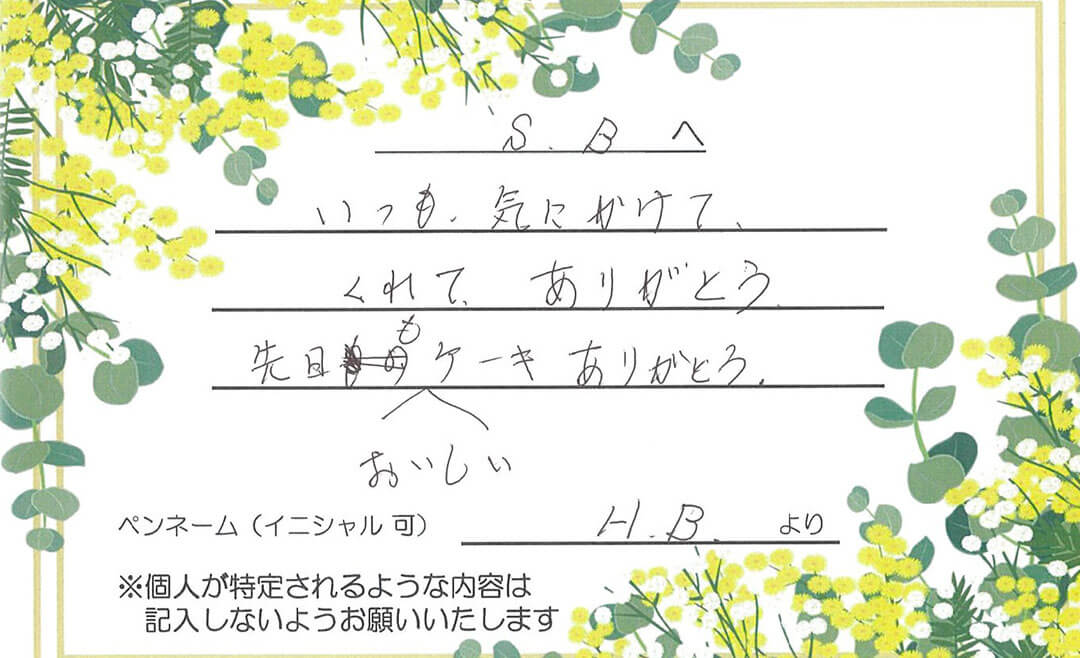 S.B へ
いつも、気にかけて、
くれて、ありがとう。
先日も ケーキ ありがとう。
おいしい
ペンネーム（イニシャル 可） H.B. より
※個人が特定されるような内容は
記入しないようお願いいたします